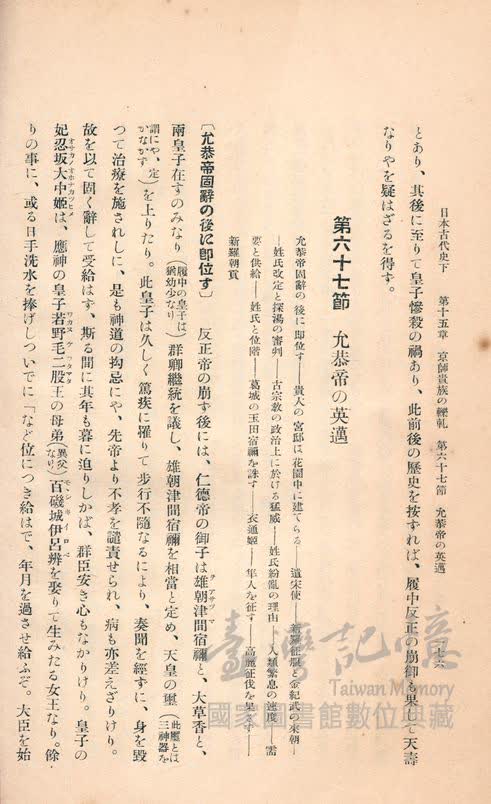 日本古代史下 第十五章 京師貴族の軋轢 第六十七節 允恭帝の英邁
とあり、其後に至りて皇子慘殺の禍あり、此前後の歷史を按ずれば、履中反正の崩御も果して天壽
なりやを疑はざるを得す。
第六十七節 允恭帝の英邁
允恭帝固辭の後に即位す――貴人の宮邸は花園中に建てらる――遣宋使――新羅征服と金紀武の來朝―
―姓氏改定と探湯の審判――古宗敎の政治上に於ける猛威――姓氏紛亂の理由――人類繁息の速度――需
要と供給――姓氏と位階――葛城の玉田宿禰を誅す――衣通姬――隼人を征す――高麗征伐を果さず――
新羅朝貢
〔允恭帝固辭の後に即位す〕 反正帝の崩ず後には、仁德帝の御子は雄朝津間宿禰と、大草香と、
兩皇子在すのみなり(履中の皇子は猶幼少なり)群卿繼統を議し、雄朝津間宿禰を相當と定め、天皇の璽(此璽とは三神器を
謂にや、定かならず)を上りたり。此皇子は久しく篤疾に罹りて步行不隨なるにより、奏聞を經ずに、身を毀
つて治療を施されしに、是も神道の拘忌にや、先帝より不孝を譴責せられ、病も亦差えざりけり。
故を以て固く辭して受給はす、斯る間に其年も暮に迫りしかば、群臣安き心もなかりけり。皇子の
妃忍坂大中姬は、應神の皇子若野毛二股王の母弟(異父なり)百磯城伊呂辨を娶りて生みたる女王なり。餘
りの事に、或る日手洗水を捧げしついでに「など位につき給はで、年月を過させ給ふぞ。大臣を始
臺灣記憶
Taiwan Memory
國家圖書館數位典藏